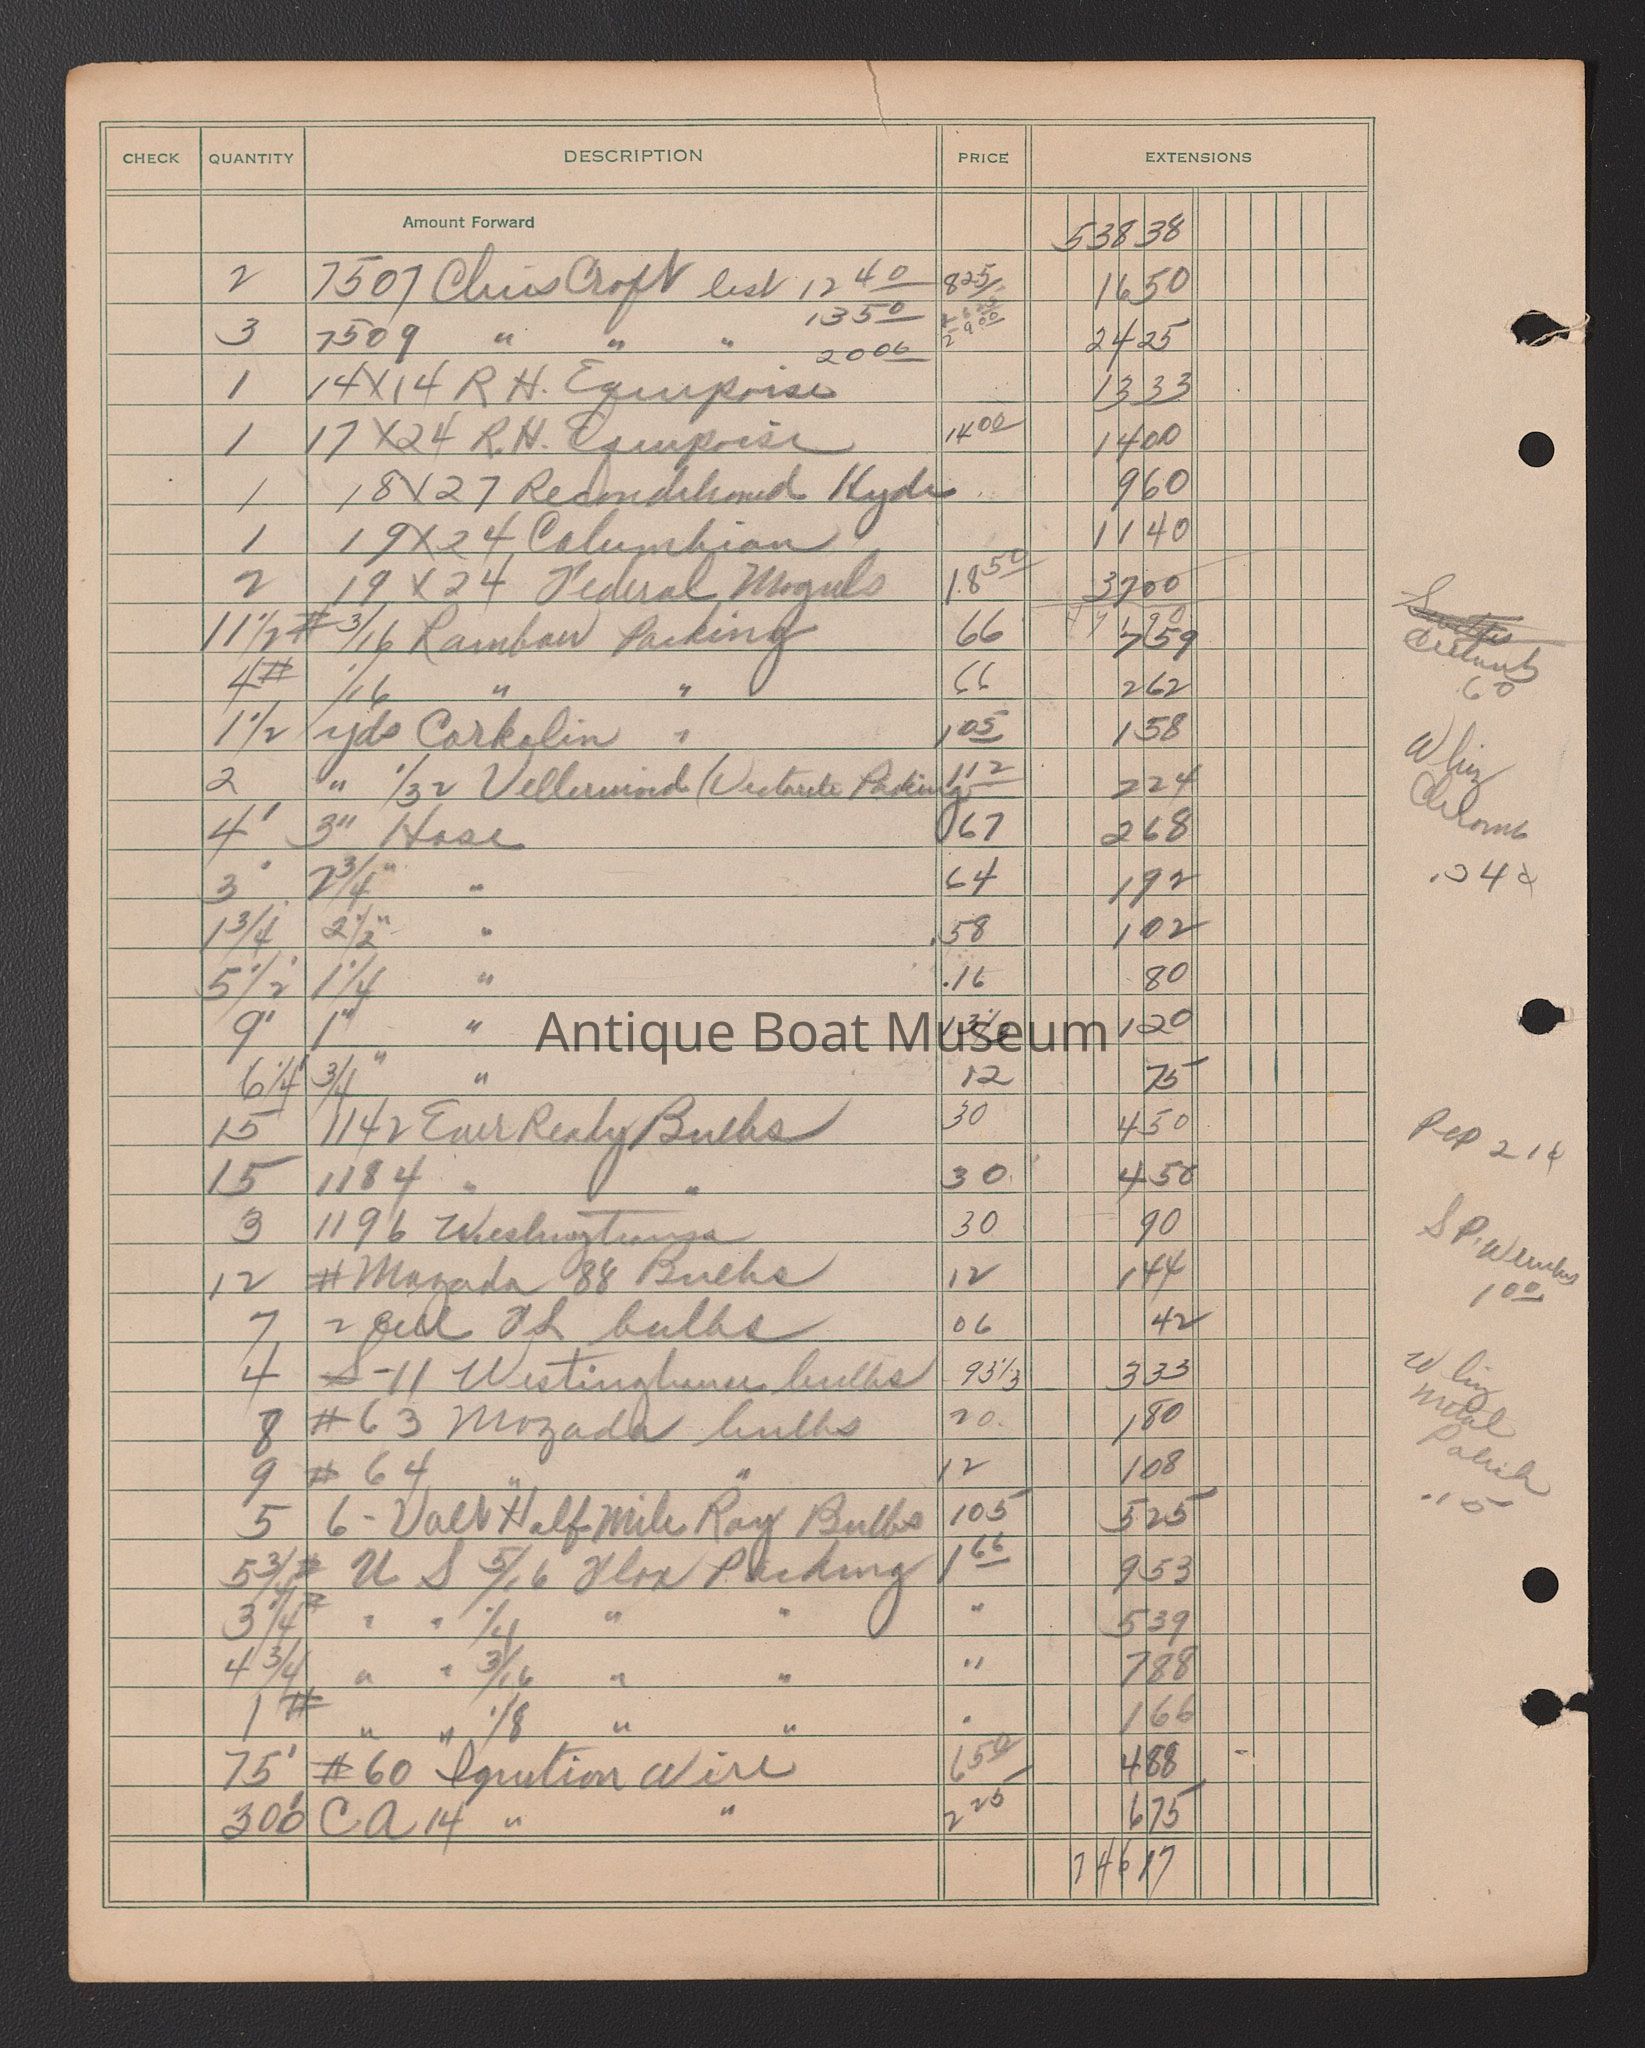 CHECK QUANTITY DESCRIPTION PRICE EXTENSIONS
Amount Forward 538 38
2 7507 Chris Croft list 12 40 8 25 16 50
13 50
3 7509 " " " 24 25
20 06
1 14X14 R H. Equipoise 13 33
1 17X24 R.H. Equipoise 14 00 14 00
1 18X27 Reconditioned Hyde 9 60
1 19X24 Columbian 11 40
2 19X24 Federal Moguls 18 50 37 00
11 1/2 # 3/16 Rainbow Packing 66 7 59
4 # 1/16 " " 66 2 62
1 1/2 yds Corkolin " 1 05 1 58
2 " 1/32 Vellumoid ( Packing 1 12 2 24
4' 3" Hose 67 2 68
3' 2 3/4" " 64 1 92
1 3/4' 2 1/2" " .58 1 02
5 1/2' 1 1/4 " .16 80
9' 1" " 13 1/2 1 20
6 1/4' 3/4" " 12 75
15 1142 EverReady Bulbs 30 4 50
15 1184 " " 30 4 50
3 1196 Westinghouse 30 90
12 # Mazada 88 Bulbs 12 1 44
7 2 cell FL bulbs 06 42
4 S-11 Westinghouse bulbs 93 1/3 3 33
8 #63 Mozada bulbs 20 1 80
9 #64 " " 12 1 08
5 6-Volt Half Mile Ray Bulbs 1 05 5 25
5 3/4 # U S 5/16 Flax Packing 1 66 9 53
3 1/4 # " " 1/4 " " " 5 39
4 3/4 " " 3/16 " " " 7 88
1 # " " 1/8 " " " 1 66
75' #60 Ignition Wire 6 50 4 88
300' C A 14 " " 2 25 6 75
746 17
60
Whiz
Chrome
.34¢
Pep 21¢
1 00
Whiz
Metal
Polish
.15
Antique Boat Museum